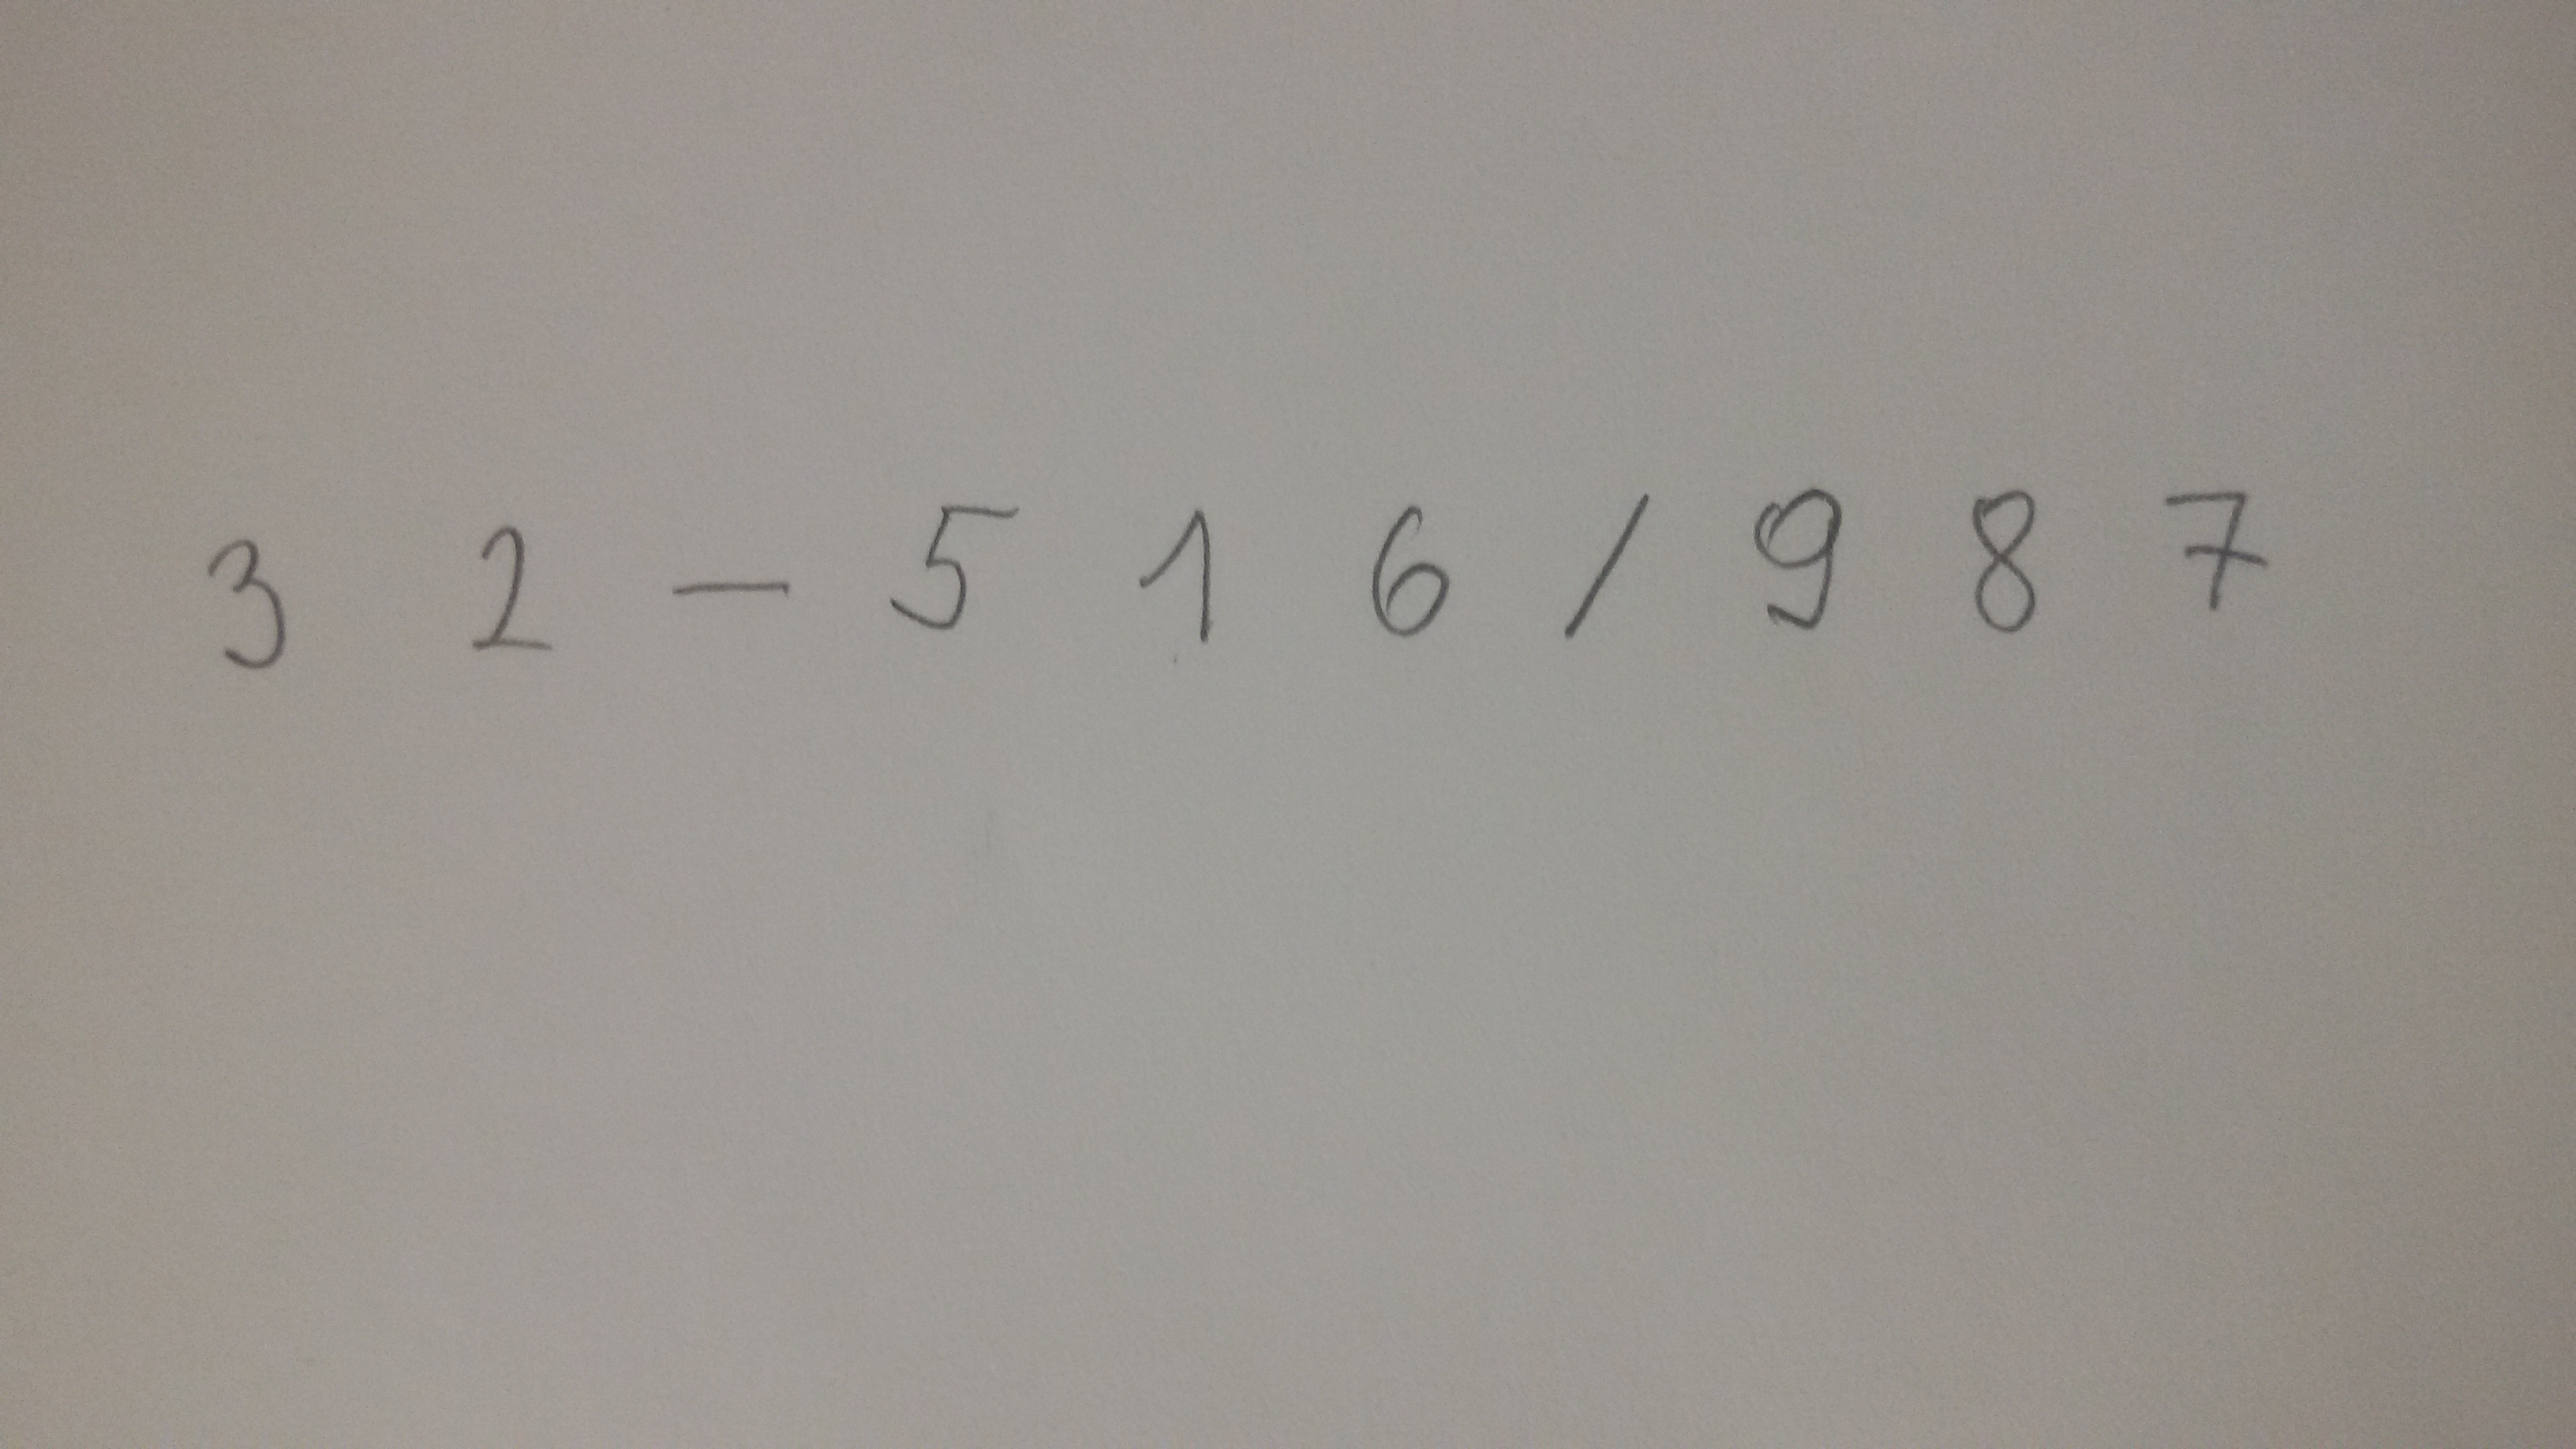 3 2 - 5 1 6 / 9 8 7